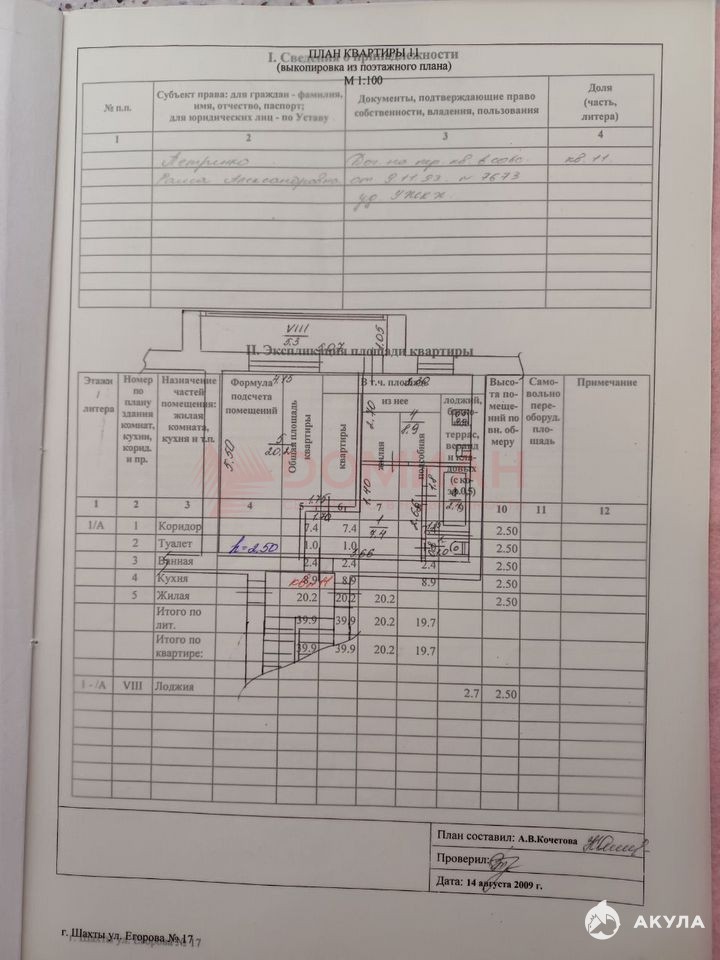 ПЛАН КВАРТИРЫ 11
I. Сведения о принадлежности
(выкопировка из поэтажного плана)
М 1:100
№ п.п.
Субъект права: для граждан - фамилия, имя, отчество, паспорт; для юридических лиц - по Уставу
Документы, подтверждающие право собственности, владения, пользования
Доля (часть, литера)
1 2 3 4
кв. 11.
от 9.11.93. № 7673
VIII
5.5
5.07
1.05
II. Экспликация площади квартиры
Этажи / литера
Номер по плану здания комнат, кухни, корид. и пр.
Назначение частей помещения: жилая комната, кухня и т.п.
Формула подсчета помещений
Общая площадь квартиры
В т.ч. площадь
из нее
квартиры
жилая
подсобная
Высота помещений по вн. обмеру
Самовольно переоборуд. площадь
Примечание
4.15
5.50
5
2.40
4
8.9
1.40
1.75
1.70
1
7.4
3.66
ДОМИАН
1 2 3 4 5 6 7 10 11 12
1/А 1 Коридор 7.4 7.4 2.50
2 Туалет 1.0 1.0 2.50
3 Ванная 2.4 2.4 2.4 2.50
4 Кухня 8.9 8.9 8.9 2.50
5 Жилая 20.2 20.2 20.2 2.50
Итого по лит. 39.9 39.9 20.2 19.7
Итого по квартире: 39.9 39.9 20.2 19.7
1 - /А VIII Лоджия 2.7 2.50
h=2.50
План составил: А.В.Кочетова
Проверил:
Дата: 14 августа 2009 г.
г. Шахты ул. Егорова № 17
г. Шахты ул. Егорова № 17
АКУЛА